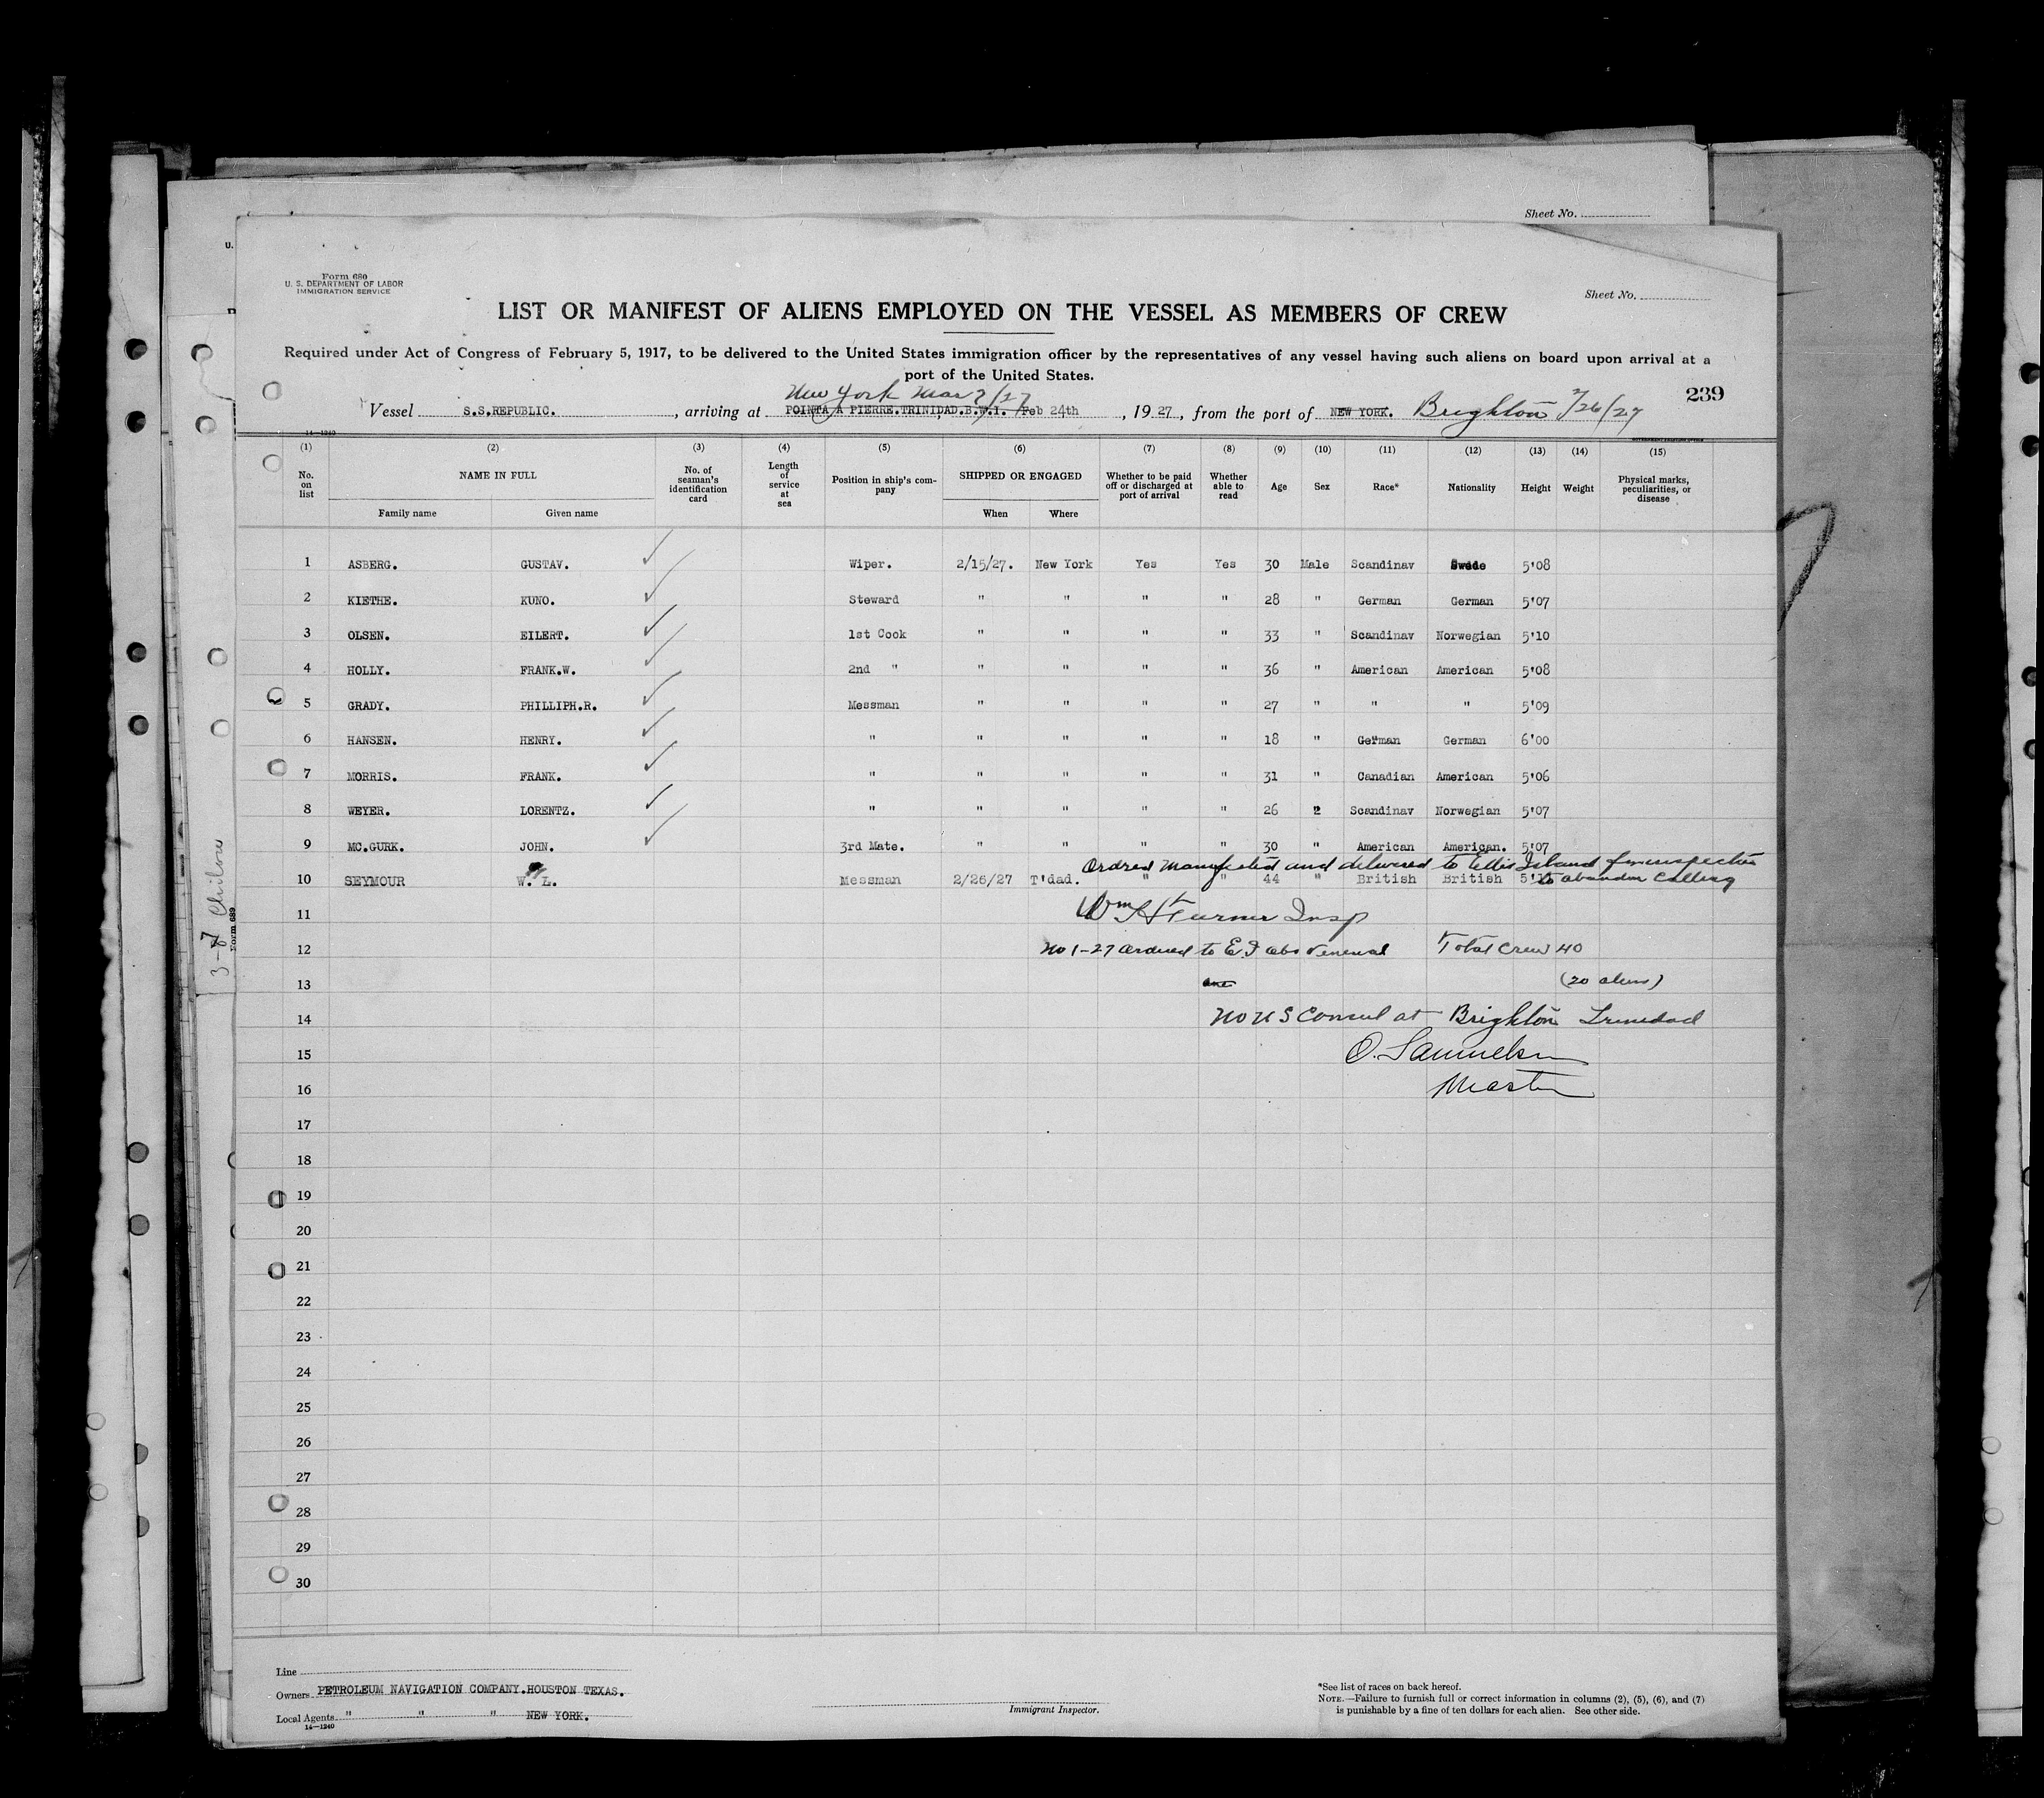 Sheet No.
U.
Form 680
U. S. DEPARTMENT OF LABOR
IMMIGRATION SERVICE
Sheet No.
LIST OR MANIFEST OF ALIENS EMPLOYED ON THE VESSEL AS MEMBERS OF CREW
Required under Act of Congress of February 5, 1917, to be delivered to the United States immigration officer by the representatives of any vessel having such aliens on board upon arrival at a
port of the United States.
239
New York Mar 7/27
Vessel S.S.REPUBLIC. , arriving at POINTA A PIERRE.TRINIDAD.B.W.I. Feb 24th , 1927 , from the port of NEW YORK. Brighton 2/26/27
14—1240
(1) (2) (3) (4) (5) (6) (7) (8) (9) (10) (11) (12) (13) (14) (15)
No. on list NAME IN FULL No. of seaman's identification card Length of service at sea Position in ship's company SHIPPED OR ENGAGED Whether to be paid off or discharged at port of arrival Whether able to read Age Sex Race* Nationality Height Weight Physical marks, peculiarities, or disease
Family name Given name When Where
1 ASBERG. GUSTAV. Wiper. 2/15/27. New York Yes Yes 30 Male Scandinav Swede 5'08
2 KIETHE. KUNO. Steward " " " " 28 " German German 5'07
3 OLSEN. EILERT. 1st Cook " " " " 33 " Scandinav Norwegian 5'10
4 HOLLY. FRANK.W. 2nd " " " " " 36 " American American 5'08
5 GRADY. PHILLIPH.R. Messman " " " " 27 " " " 5'09
6 HANSEN. HENRY. " " " " " 18 " German German 6'00
7 MORRIS. FRANK. " " " " " 31 " Canadian American 5'06
8 WEYER. LORENTZ. " " " " " 26 2 Scandinav Norwegian 5'07
9 MC.GURK. JOHN. 3rd Mate. " " " " 30 " American American. 5'07
Ordred Manifested and delivered to Ellis Island for inspection
10 SEYMOUR W. L. Messman 2/26/27 T'dad. " " 44 " British British to abandon calling
11 Wm H Turner Insp
12 No 1-27 Ordered to E.I Total Crew 40
13 (20 aliens)
14 No U S Consul at Brighton Trinidad
15 O. Samuelsn
16 Master
17
18
19
20
21
22
23
24
25
26
27
28
29
30
Form 689
Line
Owners PETROLEUM NAVIGATION COMPANY.HOUSTON TEXAS.
Local Agents " " " NEW YORK.
14—1240
Immigrant Inspector.
*See list of races on back hereof.
NOTE.—Failure to furnish full or correct information in columns (2), (5), (6), and (7)
is punishable by a fine of ten dollars for each alien. See other side.